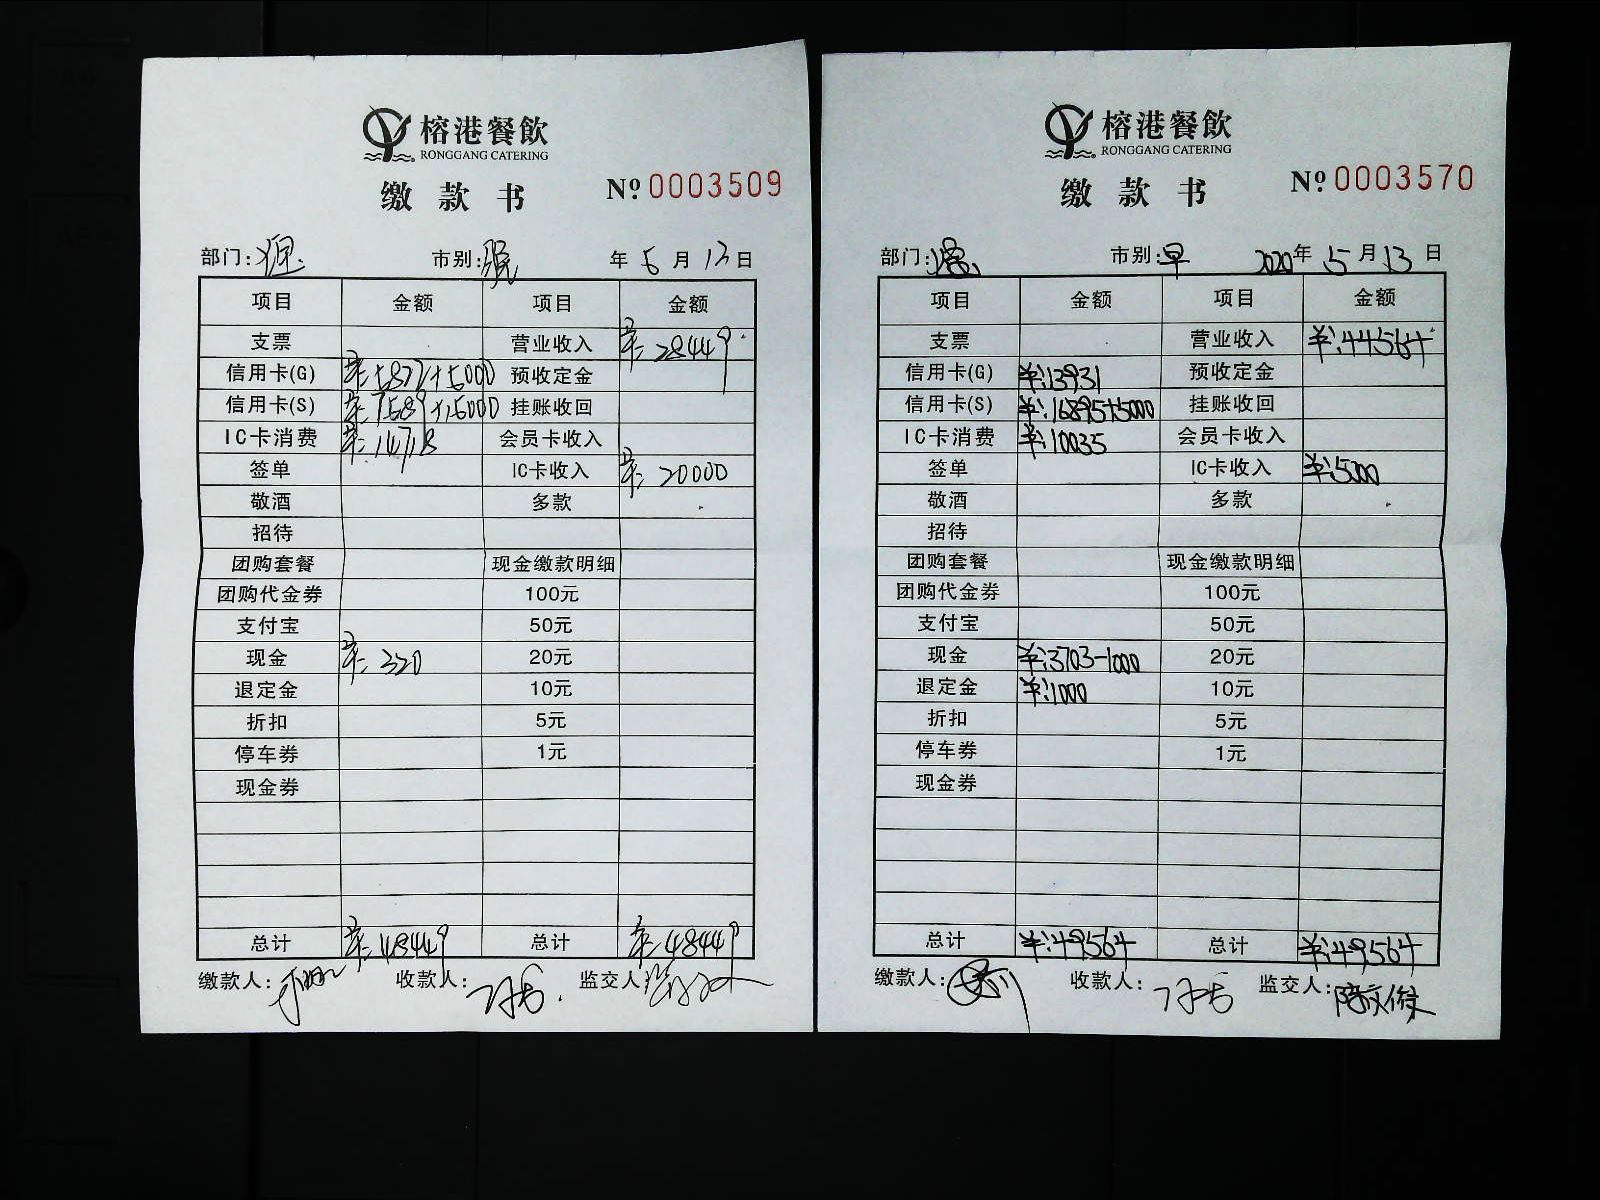 榕港餐飲
RONGGANG CATERING
缴款书 № 0003509
部门: 市别:晚 年 5 月 13 日
项目 金额 项目 金额
支票 营业收入 ¥:28449
信用卡(G) ¥:5872+5000 预收定金
信用卡(S) ¥:7589+15000 挂账收回
IC卡消费 ¥:14718 会员卡收入
签单 IC卡收入 ¥:20000
敬酒 多款
招待
团购套餐 现金缴款明细
团购代金券 100元
支付宝 50元
现金 ¥:320 20元
退定金 10元
折扣 5元
停车券 1元
现金券
总计 ¥:48449 总计 ¥:48449
缴款人: 收款人: 监交人:
榕港餐飲
RONGGANG CATERING
缴款书 № 0003570
部门: 市别:早 2020年 5 月 13 日
项目 金额 项目 金额
支票 营业收入 ¥:44564
信用卡(G) ¥:13931 预收定金
信用卡(S) ¥:16895+5000 挂账收回
IC卡消费 ¥:10035 会员卡收入
签单 IC卡收入 ¥:5000
敬酒 多款
招待
团购套餐 现金缴款明细
团购代金券 100元
支付宝 50元
现金 ¥:3703-1000 20元
退定金 ¥:1000 10元
折扣 5元
停车券 1元
现金券
总计 ¥:49564 总计 ¥:49564
缴款人: 收款人: 监交人:陈文俤